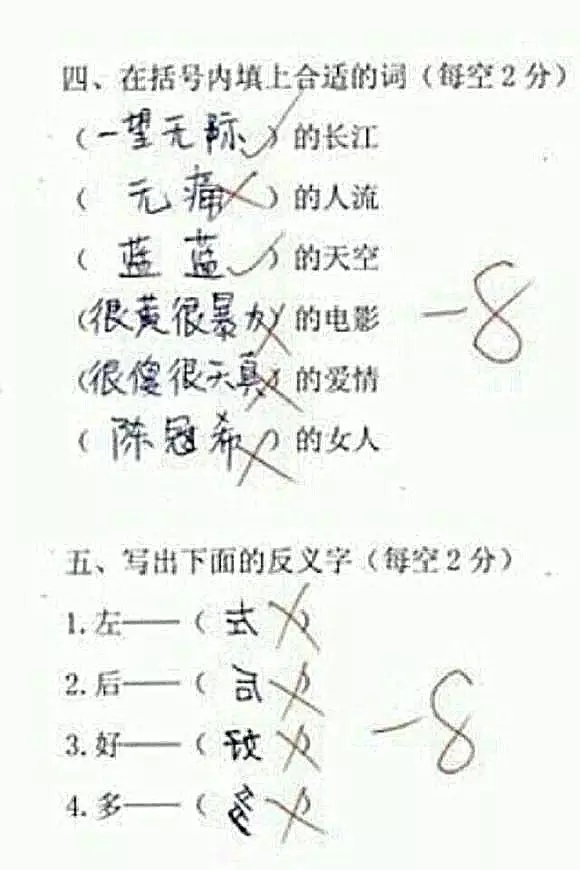 四、在括号内填上合适的词（每空2分）
（一望无际）的长江
（无痛）的人流
（蓝蓝）的天空
（很黄很暴力）的电影
（很傻很天真）的爱情
（陈冠希）的女人
-8
五、写出下面的反义字（每空2分）
1.左——（ ）
2.后——（ ）
3.好——（ ）
4.多——（ ）
-8